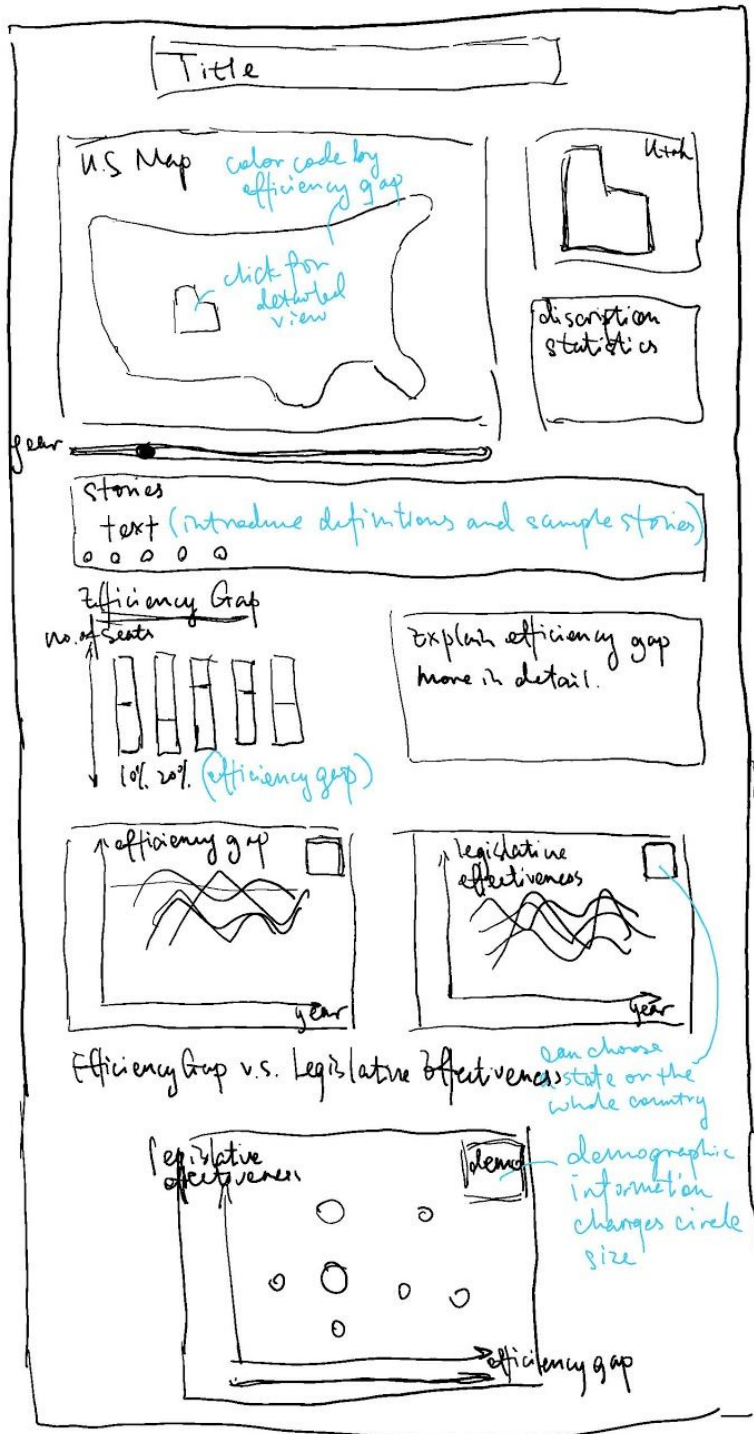 Title
U.S Map
color code by
efficiency gap
click for
detailed
view
Utah
discription
statistics
year
Stories
text (introduce definitions and sample stories)
Efficiency Gap
no. of seats
10% 20% (efficiency gap)
Explain efficiency gap
more in detail.
efficiency gap
year
legislative
effectiveness
year
can choose
a state or the
whole country
Efficiency Gap v.s. Legislative Effectiveness
legislative
effectiveness
demo
demographic
information
changes circle
size
efficiency gap